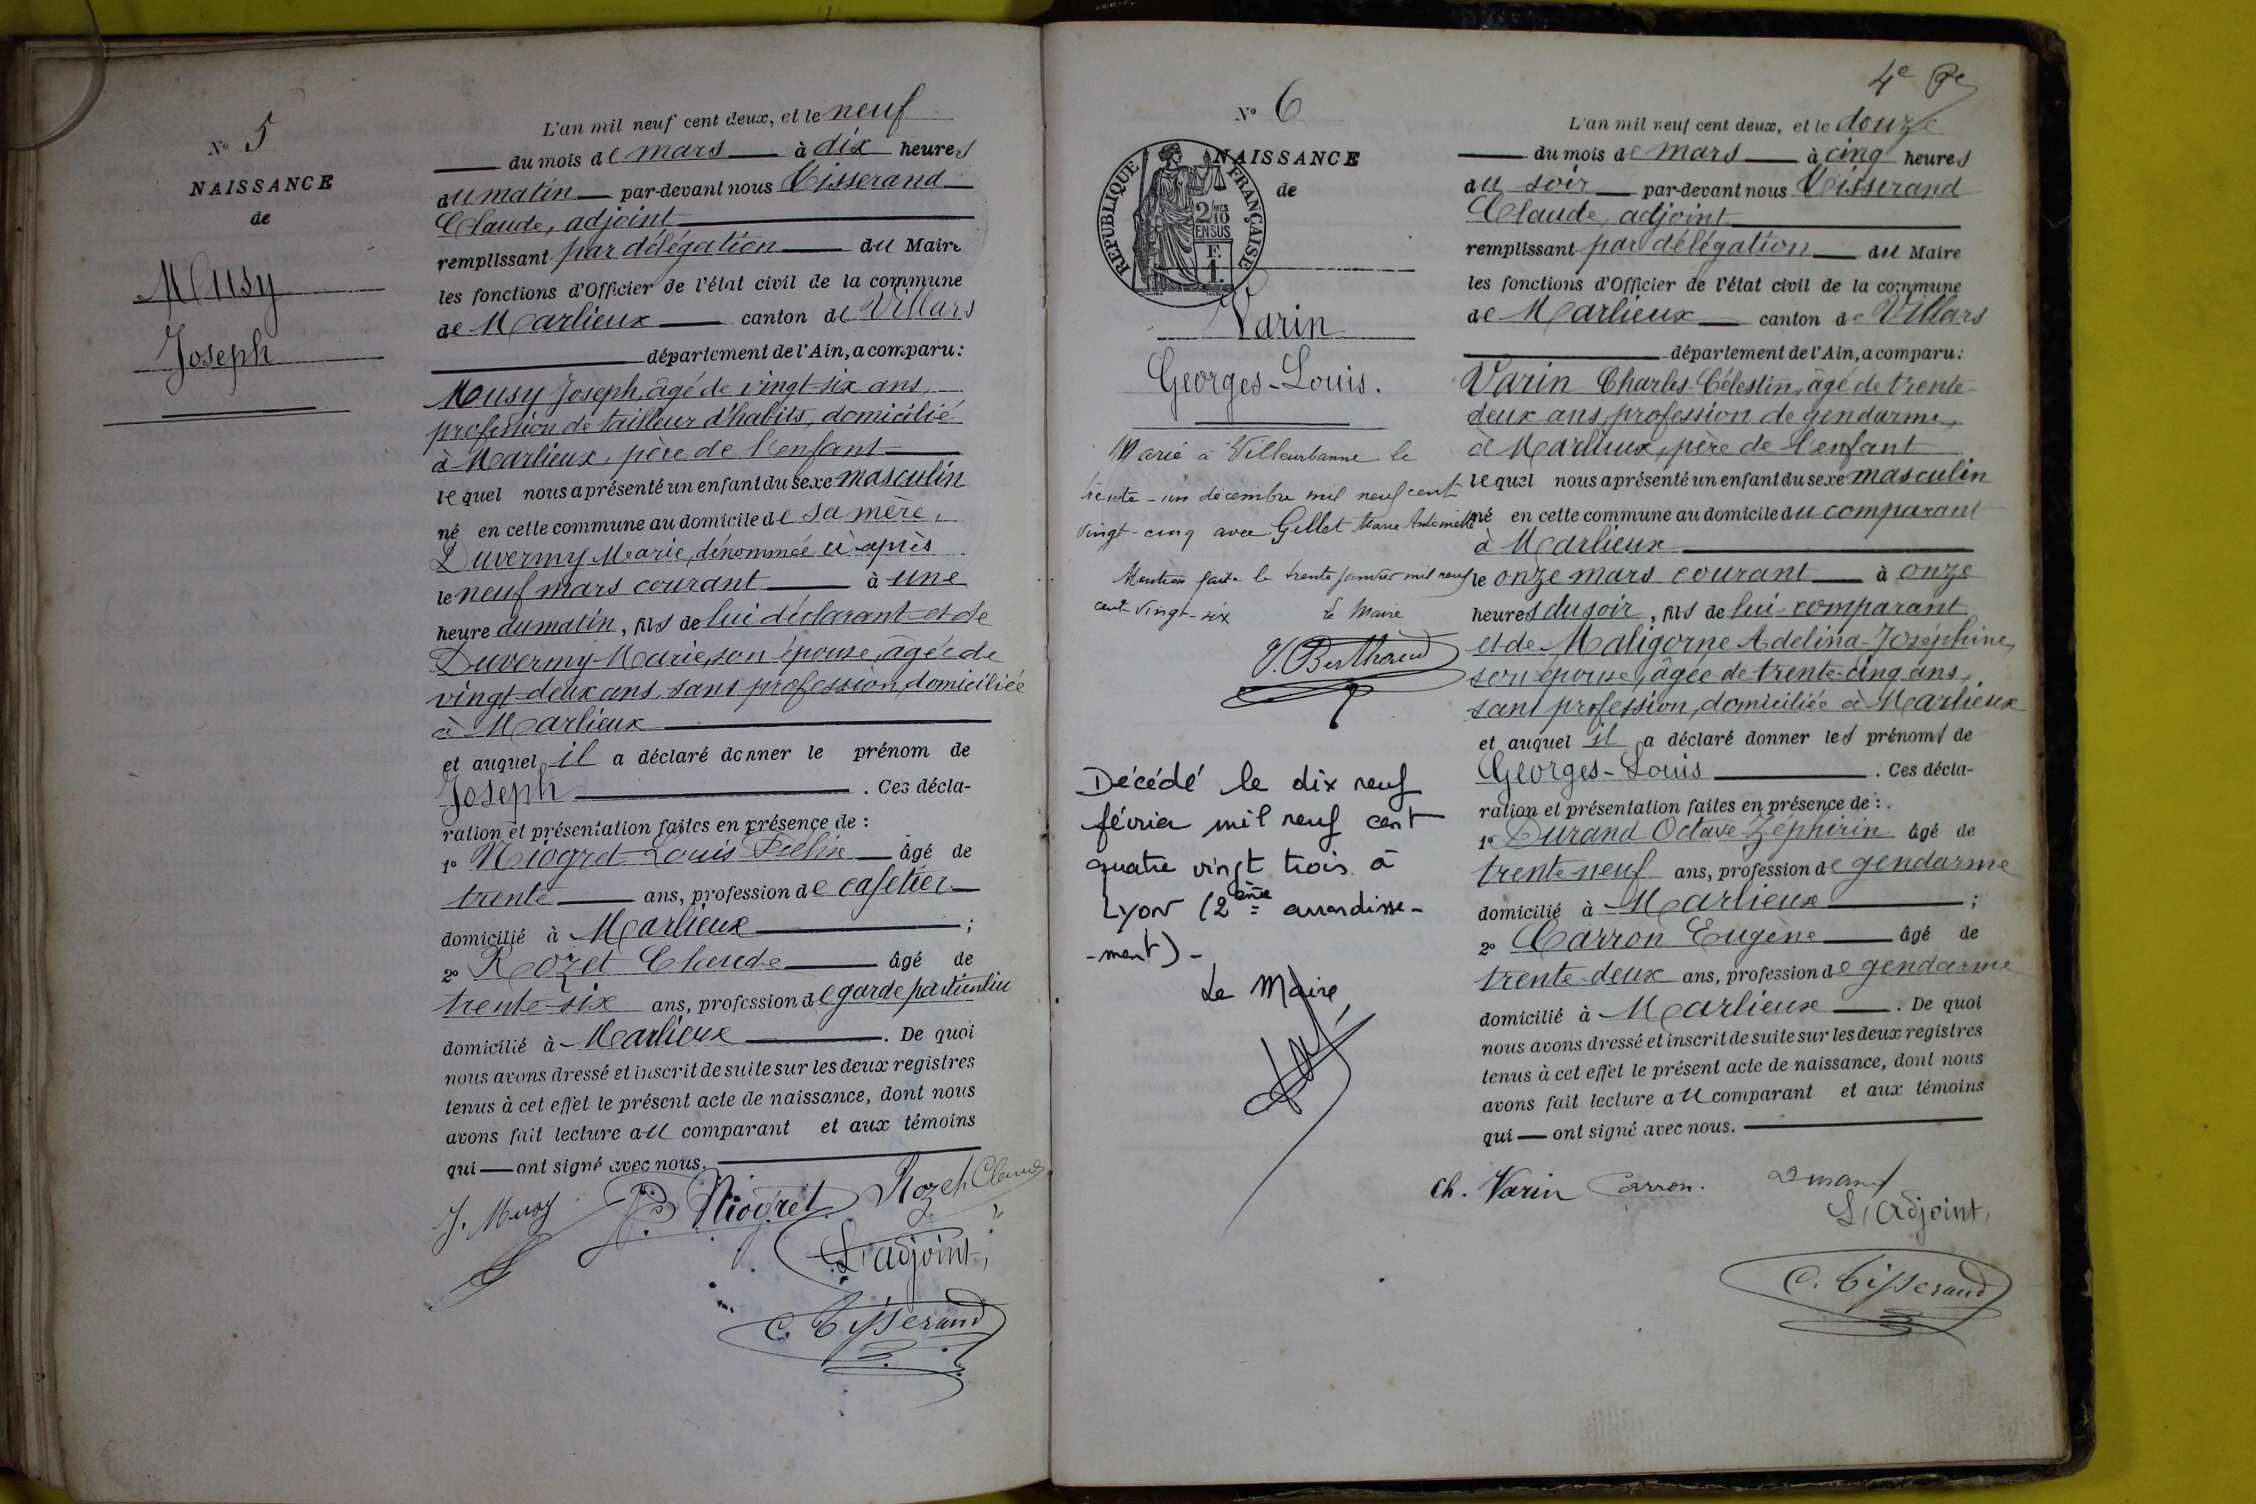 N° 5
NAISSANCE
de
Musy
Joseph
L'an mil neuf cent deux, et le neuf
du mois de mars à dix heures
du matin par-devant nous Tisserand
Claude, adjoint
remplissant par délégation du Maire
les fonctions d'Officier de l'état civil de la commune
de Marlieux canton de Villars
département de l'Ain, a comparu:
Musy Joseph, âgé de vingt-six ans,
profession de tailleur d'habits, domicilié
à Marlieux, père de l'enfant
lequel nous a présenté un enfant du sexe masculin
né en cette commune au domicile de sa mère,
Duvermy Marie, dénommée ci-après
le neuf mars courant à une
heure du matin, fils de lui déclarant et de
Duvermy Marie, son épouse, âgée de
vingt-deux ans, sans profession, domiciliée
à Marlieux
et auquel il a déclaré donner le prénom de
Joseph . Ces décla-
ration et présentation faites en présence de :
1° Niogret Louis Félix âgé de
trente ans, profession de cafetier
domicilié à Marlieux ;
2° Rozet Claude âgé de
trente-six ans, profession de garde particulier
domicilié à Marlieux . De quoi
nous avons dressé et inscrit de suite sur les deux registres
tenus à cet effet le présent acte de naissance, dont nous
avons fait lecture au comparant et aux témoins
qui — ont signé avec nous.
J. Musy Niogret Rozet Claude
L'adjoint,
C. Tisserand
4e
N° 6
NAISSANCE
de
REPUBLIQUE FRANÇAISE
2/10 MES
EN SUS
F.
1.
Varin
Georges-Louis.
Marié à Villeurbanne le
trente-un décembre mil neuf cent
vingt-cinq avec Gillet Marie Antoinette
Mention faite le trente janvier mil neuf
cent vingt-six Le Maire
Berthaud
Décédé le dix neuf
février mil neuf cent
quatre vingt trois à
Lyon (2ème arrondisse-
-ment)-
Le Maire,
L'an mil neuf cent deux, et le douze
du mois de mars à cinq heures
du soir par-devant nous Tisserand
Claude, adjoint
remplissant par délégation du Maire
les fonctions d'Officier de l'état civil de la commune
de Marlieux canton de Villars
département de l'Ain, a comparu:
Varin Charles-Célestin, âgé de trente-
deux ans, profession de gendarme,
à Marlieux, père de l'enfant
lequel nous a présenté un enfant du sexe masculin
né en cette commune au domicile du comparant
à Marlieux
le onze mars courant à onze
heures du soir, fils de lui comparant
et de Maligorne Adelina-Joséphine,
son épouse, âgée de trente-cinq ans,
sans profession, domiciliée à Marlieux
et auquel il a déclaré donner les prénoms de
Georges-Louis . Ces décla-
ration et présentation faites en présence de :
1° Durand Octave Zéphirin âgé de
trente neuf ans, profession de gendarme
domicilié à Marlieux ;
2° Carron Eugène âgé de
trente-deux ans, profession de gendarme
domicilié à Marlieux . De quoi
nous avons dressé et inscrit de suite sur les deux registres
tenus à cet effet le présent acte de naissance, dont nous
avons fait lecture au comparant et aux témoins
qui — ont signé avec nous.
Ch. Varin Carron. Durand
L'adjoint,
C. Tisserand